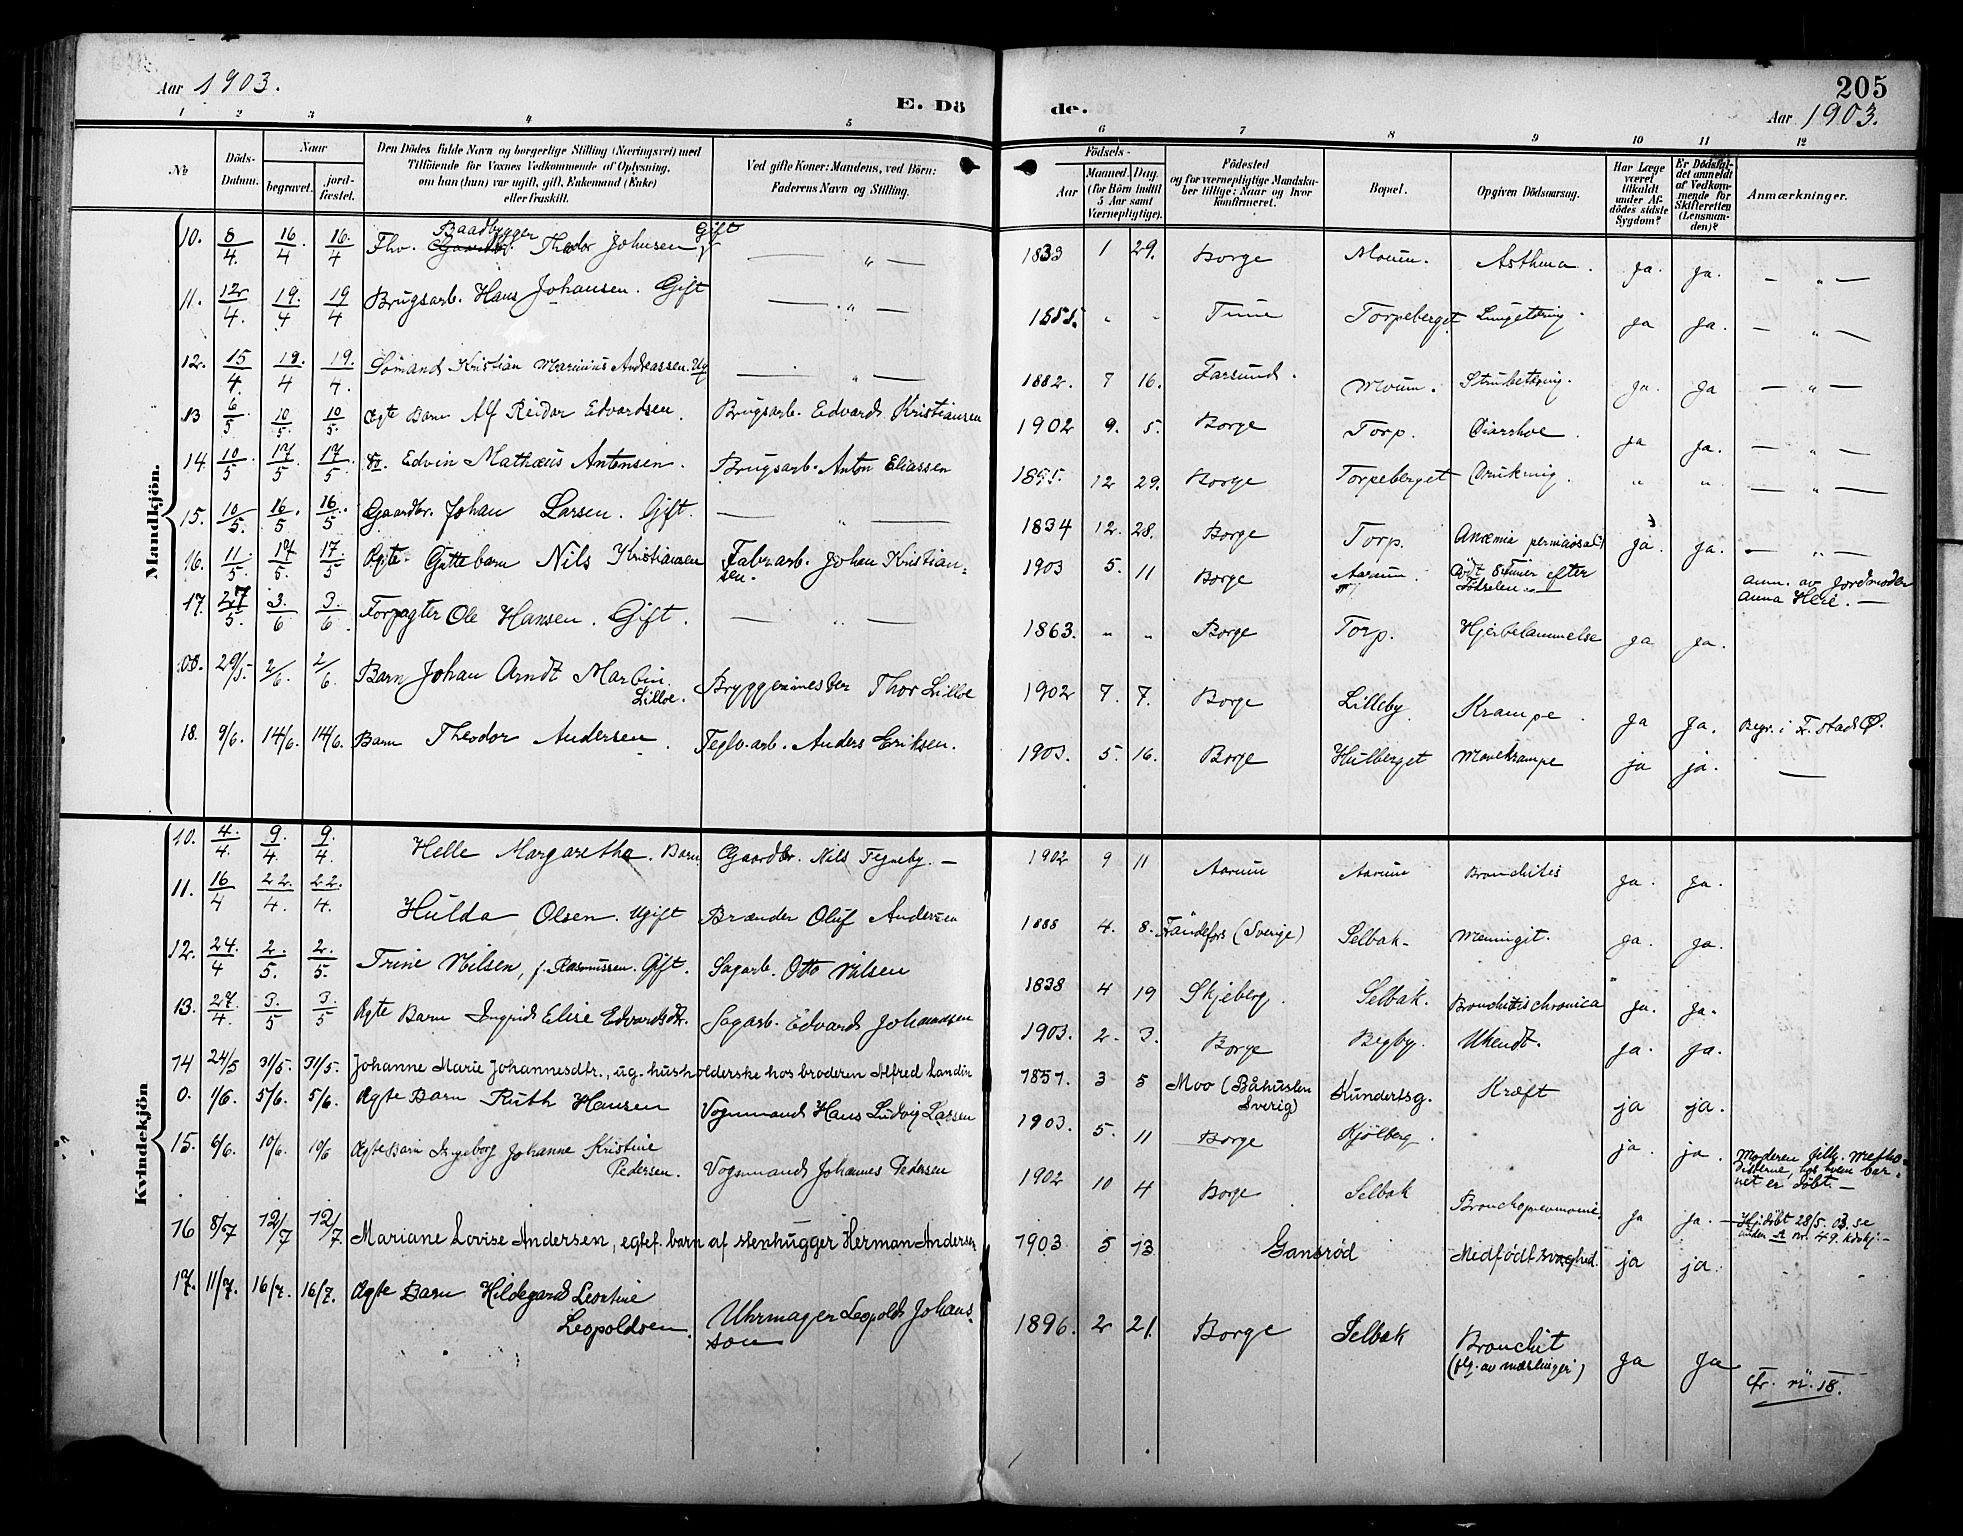 Aar 1903. E. Dö de. 205
Aar 1903.
1 2 3 4 5 6 7 8 9 10 11 12
No Döds-Datum. Naar begravet. jord-fæstet. Den Dödes fulde Navn og borgerlige Stilling (Næringsvei) med Tilföiende for Voxnes Vedkommende af Oplysning, om han (hun) var ugift, gift, Enkemand (Enke) eller fraskilt. Ved gifte Koner: Mandens, ved Börn: Faderens Navn og Stilling. Födsels- Aar Maaned. Dag. (for Börn indtil 5 Aar samt Værnepligtige). Födested og for værnepligtige Mandskaber tillige: Naar og hvor konfirmeret. Bopæl. Opgiven Dödsaarsag. Har Læge været tilkaldt under Afdödes sidste Sygdom? Er Dödsfaldet anmeldt af Vedkommende for Skifteretten (Lensmanden)? Anmærkninger.
Mandkjön.
10. 8/4. 16/4 16/4 Fhv. Baadbygger Theodor Johnsen Gift — „ — 1833 1 29. Borge Moum. Asthma. Ja. Ja. — „ —
11. 12/4. 19/4 19/4 Brugsarb. Hans Johansen. Gift — „ — 1855. „ „ Tune Torpeberget Lungetæring. Ja Ja. — „ —
12. 15/4. 19/4 19/4. Sømand Kristian Marinius Andreassen. Ug — „ — 1882. 7 16. Farsund. Moum. Strubetæring. Ja. Ja — „ —
13 6/5 10/5. 10/5. Ægte Barn Alf Reidar Edvardsen. Brugsarb. Edvard Kristiansen 1902 9. 5. Borge Torp. Diarrhoe. Ja Ja. — „ —
14. 10/5 17/5 17/5. Edvin Mathæus Antonsen. Brugsarb. Anton Eliassen 12 29. Borge Torpeberget Drukning. „ „ — „ —
15. 10/5. 16/5. 16/5 Gaardbr. Johan Larsen. Gift. — „ — 1834 12. 28. Borge Torp. Anæmia Ja. Ja. — „ —
16. 11/5. 17/5. 17/5 Ægte. Guttebarn Nils Kristiansen Fabr.arb. Johan Kristiansen. 1903 5. 11 Borge Aarum. efter Fødselen. anm. av Jordmoder Anna Heie. —
17. 27/5. 3/6 3/6 Forpagter Ole Hansen. Gift. — „ — 1863. „ „ Borge Torp. Hjertelammelse Ja Ja.
29/5 2/6. 2/6. Barn Johan Arndt Martin Lilloe. Bryggerimester Thor Lilloe 1902 7. 7. Borge Lilleby. Krampe. Ja Ja. Begr. i Fr.stad Ø.
18. 9/6. 14/6. 14/6. Barn Theodor Andersen. Teglv.arb. Anders Eriksen. 1903. 5. 16. Borge Hulberget Mavekrampe ja ja. —
Kvindekjön
10. 4/4. 9/4. 9/4. Helle Margarethe. Barn Gaardbr. Nils Tegneby. — 1902 9 11 Aarum Aarum Bronchites Ja. Ja.
11. 16/4 22/4. 22/4. Hulda Olsen. Ugift Brænder Oluf Andersen 1888 4. 8. (Sverige) Selbak. Meningit. Ja. Ja.
12. 24/4 2/5. 2/5. Trine Nilsen, f. Rasmussen. Gift. Sagarb. Otto Nilsen 1838 4 19 Skjeberg. Selbak. Bronchitis chronica Ja. Ja.
13. 27/4. 3/5 3/5 Ægte Barn Ingrid Elise Edvardsdtr. Sagarb. Edvard Johannsen 1903. 2. 3. Borge Begby. Ukendt. Ja. Ja.
14 24/5 31/5. 31/5. Johanne Marie Johannesdtr., ug. husholderske hos broderen Alfred Landin 1851. 3 5 Moo (Båhuslen Sverig) Kundertsg. Kræft ja ja.
0. 1/6. 5/6. 5/6. Ægte Barn Ruth Hansen Vognmand Hans Ludvig Larsen 1903. 5. 11 Borge Kjölberg. ja. ja.
15. 6/6. 10/6. 10/6 Ægte Barn Ingeborg Johanne Kristine Pedersen. Vognmand Johannes Pedersen 1902 10 4 Borge Selbak Bronchopneumonie. Ja Ja. Moderen tilh. Methodisterne, hos hvem barnet er döbt. —
16 8/7 12/7 12/7. Mariane Lovise Andersen, egtef. barn af stenhugger Herman Andersen 1903 5 13 Gansrød Medfødt svaghed. ja ja. Hj.döbt 28/5. 03. se under A nr. 49. kvkj. —
17. 11/7. 16/7. 16/7. Ægte Barn Hildegard Leontine Leopoldsen. Uhrmager Leopold Johansson 1896. 2 21. Borge Selbak Bronchit (flg. av mæslinger) Ja Ja cfr. nr. 18.